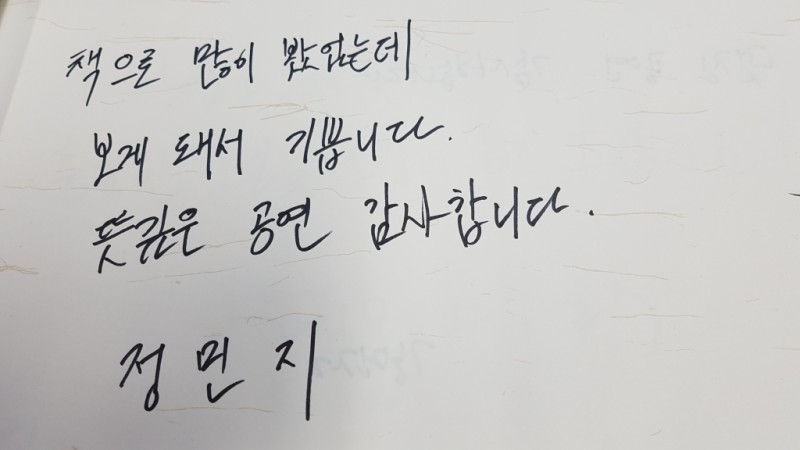 책으로 많이 봤었는데
보게 돼서 기쁩니다.
뜻깊은 공연 감사합니다.
정민지